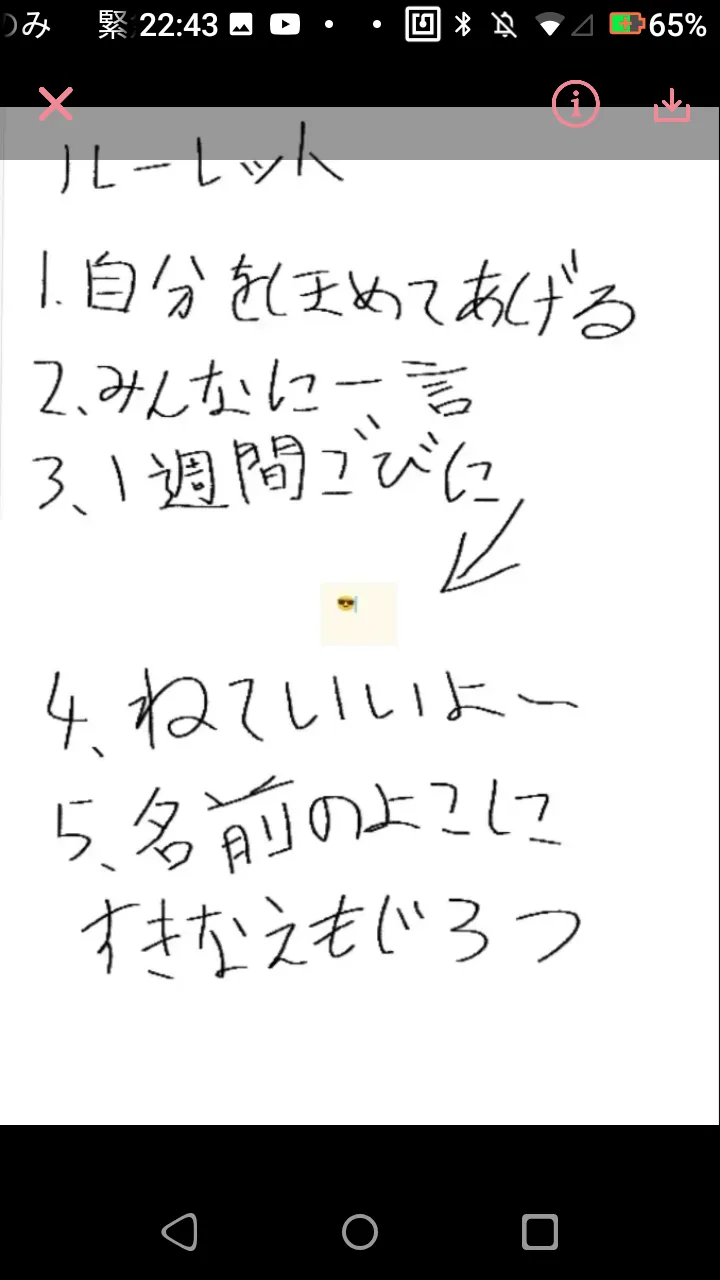 み 緊 22:43 65%
ルーレット
1.自分をほめてあげる
2、みんなに一言
3、1週間ごびに
😎
4、ねていいよー
5、名前のよこに
すきなえもじ3つ